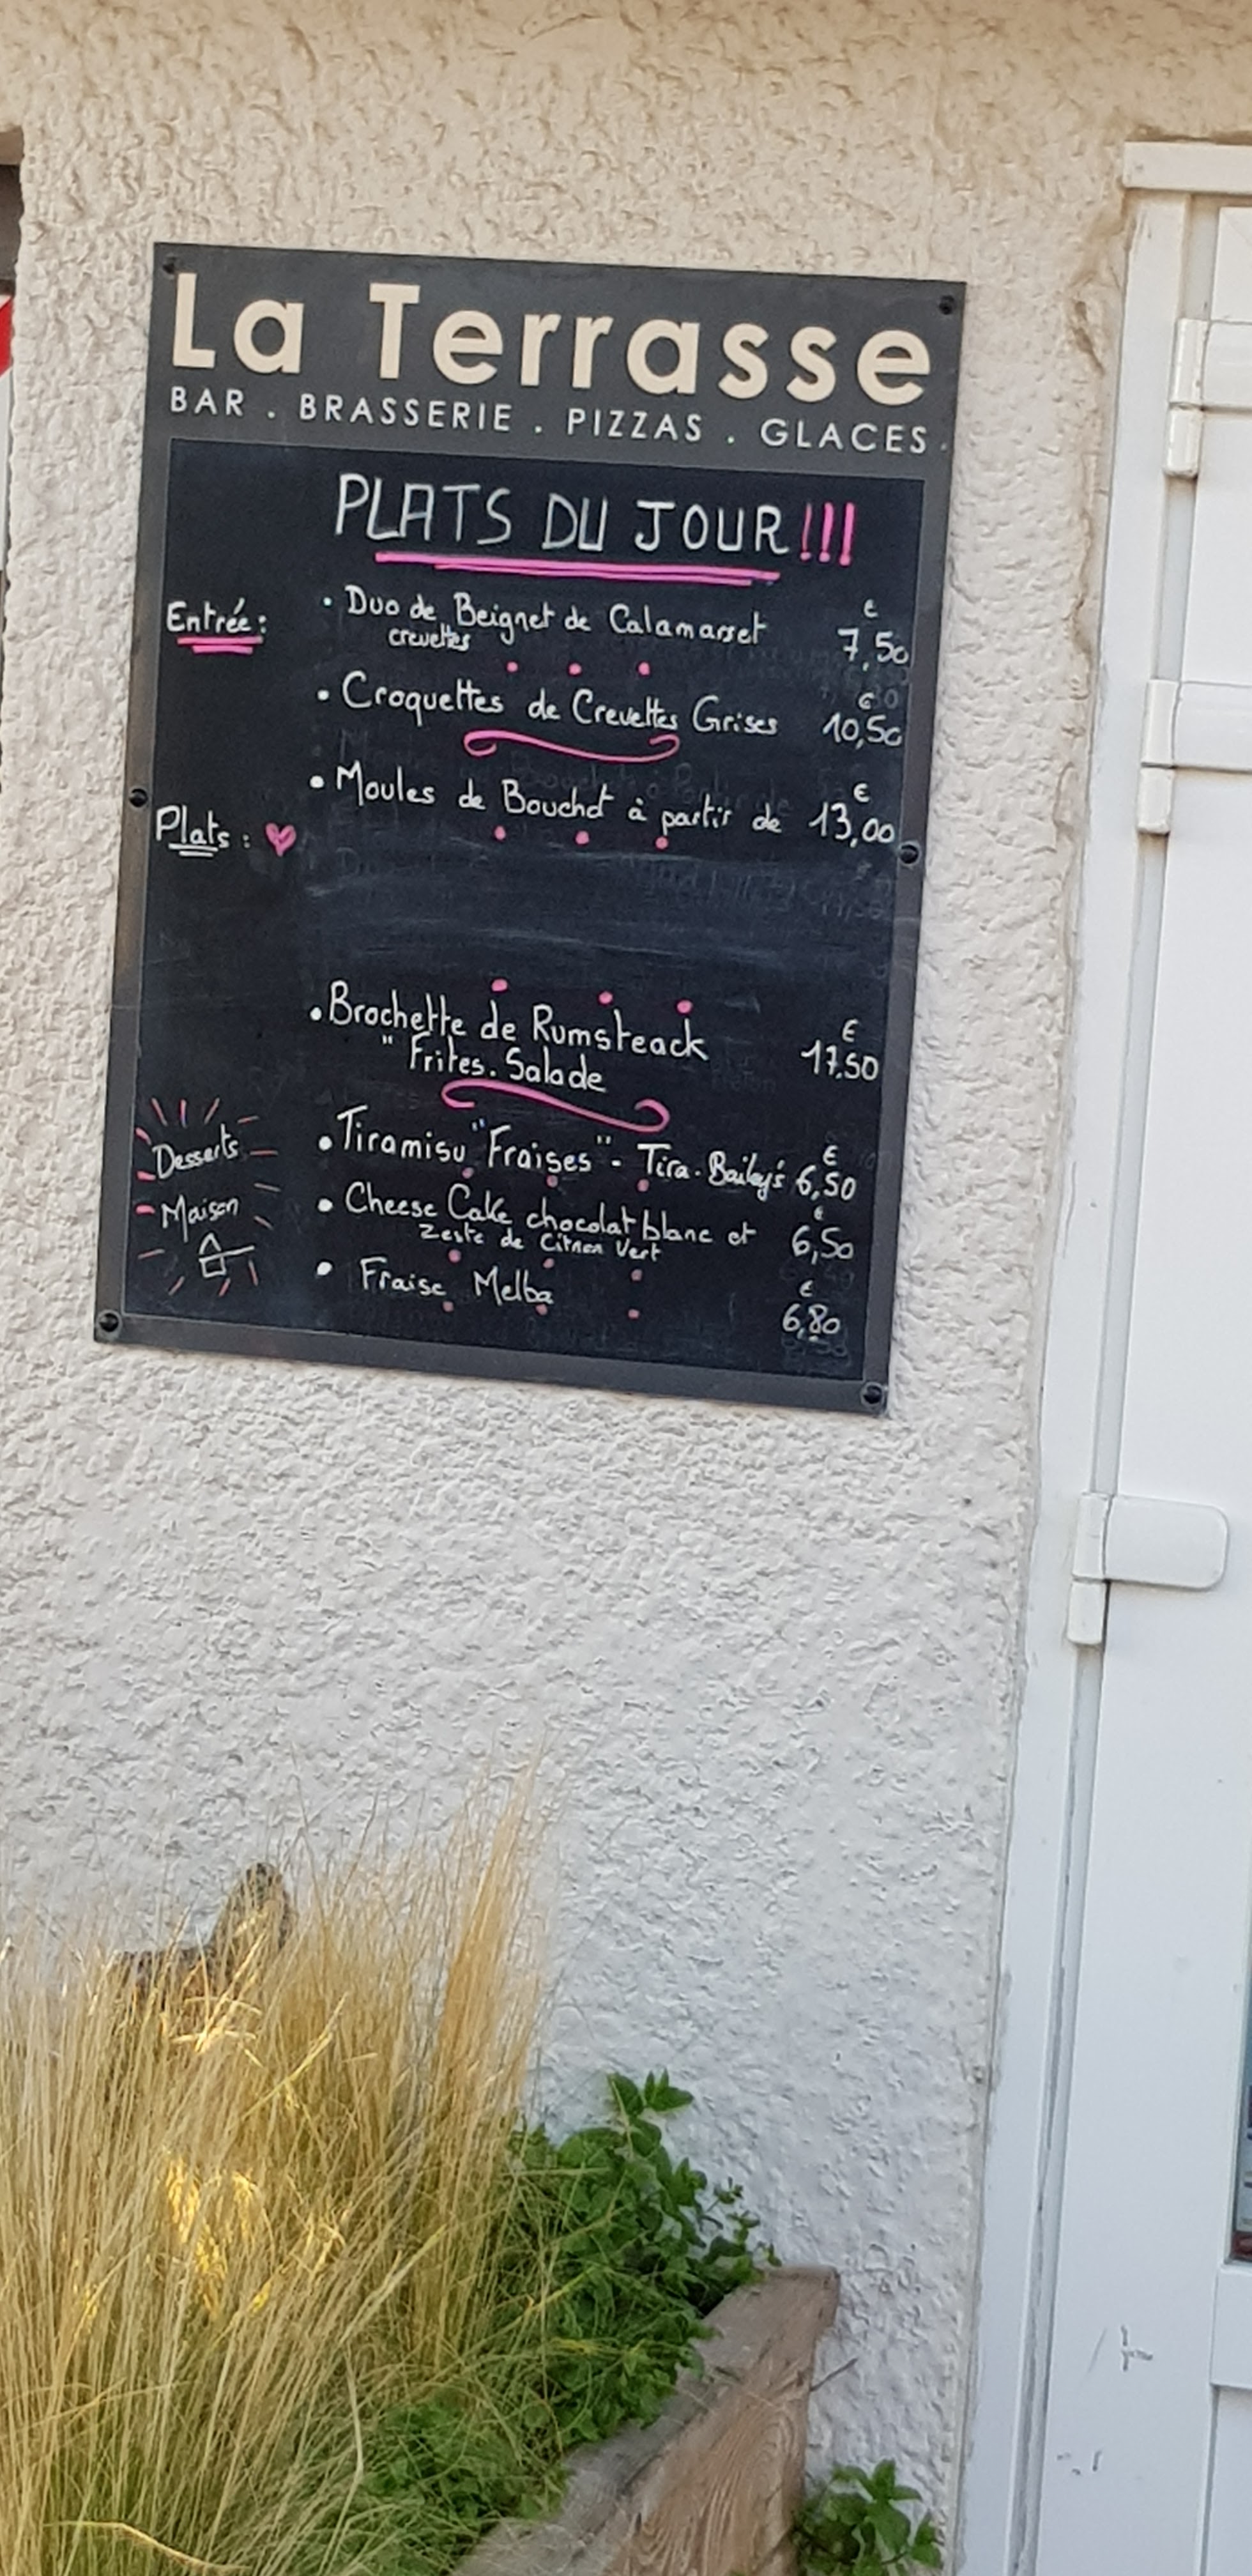 La Terrasse
BAR . BRASSERIE . PIZZAS . GLACES
PLATS DU JOUR!!!
Entrée:
• Duo de Beignet de Calamar et 7,50 €
crevettes
• Croquettes de Crevettes Grises 10,50 €
Plats :
• Moules de Bouchot à partir de 13,00 €
• Brochette de Rumsteack 17.50 €
" Frites. Salade
Desserts
Maison
• Tiramisu "Fraises" - Tira. Bailey's 6,50 €
• Cheese Cake chocolat blanc et 6,50 €
Zeste de Citron Vert
• Fraise Melba 6,80 €